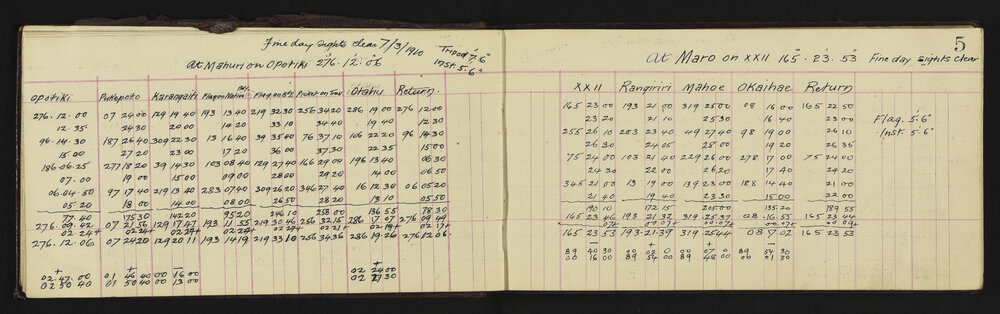 Fine day sights clear 7/3/1910
Tripod 7'.6"
At Mahuri on Opotiki 276°.12'.06"
Inst. 5.6"
Opotiki Karangaiti Otahu Return.
276.12.00 07 24 00 129 19 40 193 13 40 219 32 30 256 34 20 286 19 00 276 12 00
12.35 24 30 20 00 14 20 33 10 34 40 19 40 12 30
96.14.30 187 26 40 309 22 30 13 16 40 39 35 40 76 37 10 106 22 20 96 14 30
15 00 27 20 23 00 17 20 36 00 37 30 22 35 15 00
186.06.25 277 18 20 39 14 30 103 08 40 129 27 40 166 29 00 196 13 40 06 30
07.00 19 00 15 00 09 00 28 00 29 20 14 00 06 50
06.04.50 97 17 40 219 13 40 283 07 40 309 26 20 346 27 40 16 12 30 06 05 20
05 20 18 00 14 00 08 00 26 50 28 20 13 10 05 50
77.40 175 30 142 20 95 20 246 10 258 00 136 55 78 30
276.09.42 07 21 56 129 17 47 193 11 55 219 30 46 256 32 15 286 17 07 276 09 49
02.24+ 02 24+ 02 24+ 02 24+ 02 21+ 02 19+ 02 17+
276.12.06 07 24 20 129 20 11 193 14 19 219 33 10 256 34 36 286 19.26 276 12 06
+ + — +
02.47.00 01 46 40 00 16 00 02 24 00
02 50 40 01 50 40 00 13 00 02 27 30
5
At Maro on XXII 165°.23'.53" Fine day sights clear
XXII Rangiriri Mahoe Okaihae Return
165 23 00 193 21 00 319 25 00 08 16 00 165 22 50
23 20 21 10 25 30 16 40 23 00 Flag. 5'.6"
255 26 10 283 23 40 49 27 40 98 19 00 26 10 Inst. 5'6"
26 30 24 05 28 00 19 20 26 35
75 24 00 103 21 40 229 26 00 278 17 00 75 24 00
24 30 22 00 26 20 17 40 24 20
345 21 00 13 19 00 139 23 00 188 14 40 21 00
21 40 19 40 23 30 15 00 22 00
190 10 172 15 205 00 135.20 189 55
165 23 46 193 21 32 319 25 37 08.16.55 165 23 44
165 23 53 193.21.39 319.25 44 08 17 02 165 23 53
— + + —
89 40 30 00 02 0 00 07 0 89 54 30
00 16 00 89 54 00 89 48 00 00 01 30